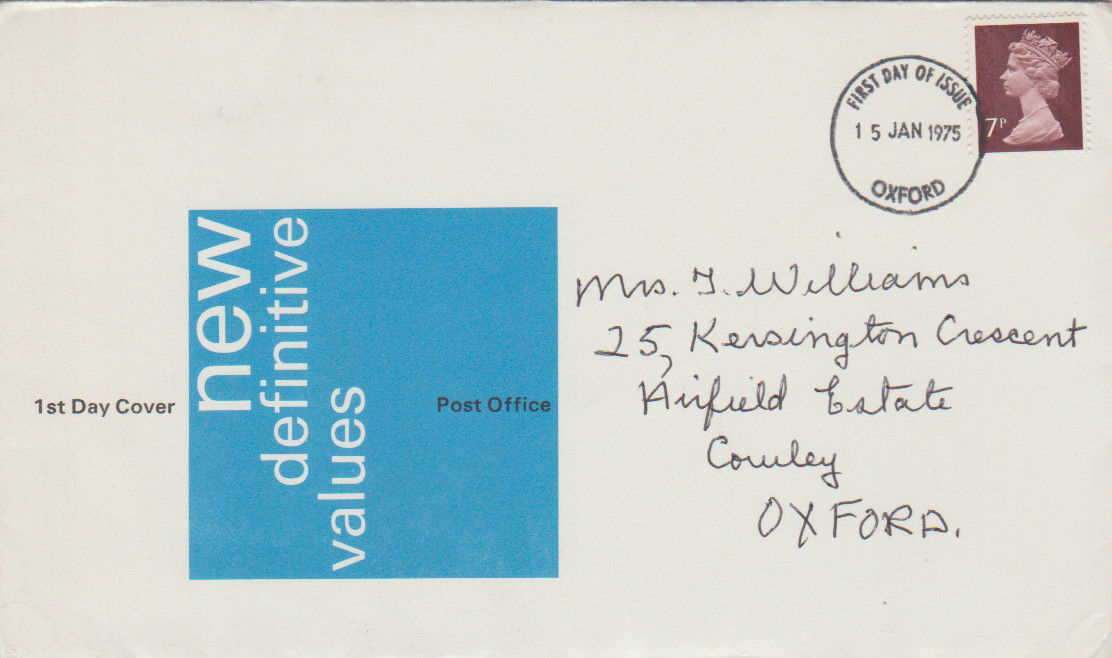 FIRST DAY OF ISSUE
15 JAN 1975
OXFORD
7P
new
definitive
values
1st Day Cover
Post Office
Mrs. J. Williams
25, Kersington Crescent
Airfield Estate
Cowley
OXFORD.